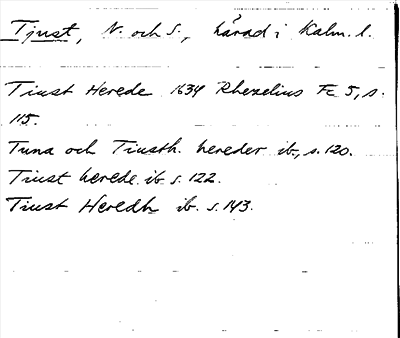 Tjust, N. och S., härad i Kalm. l.
Tiust Herede 1634 Rhezelius Fc 5, s.
115.
Tuna och Tiusth. hereder ib., s. 120.
Tiust herede ib s. 122.
Tiust Heredh ib. s. 143.